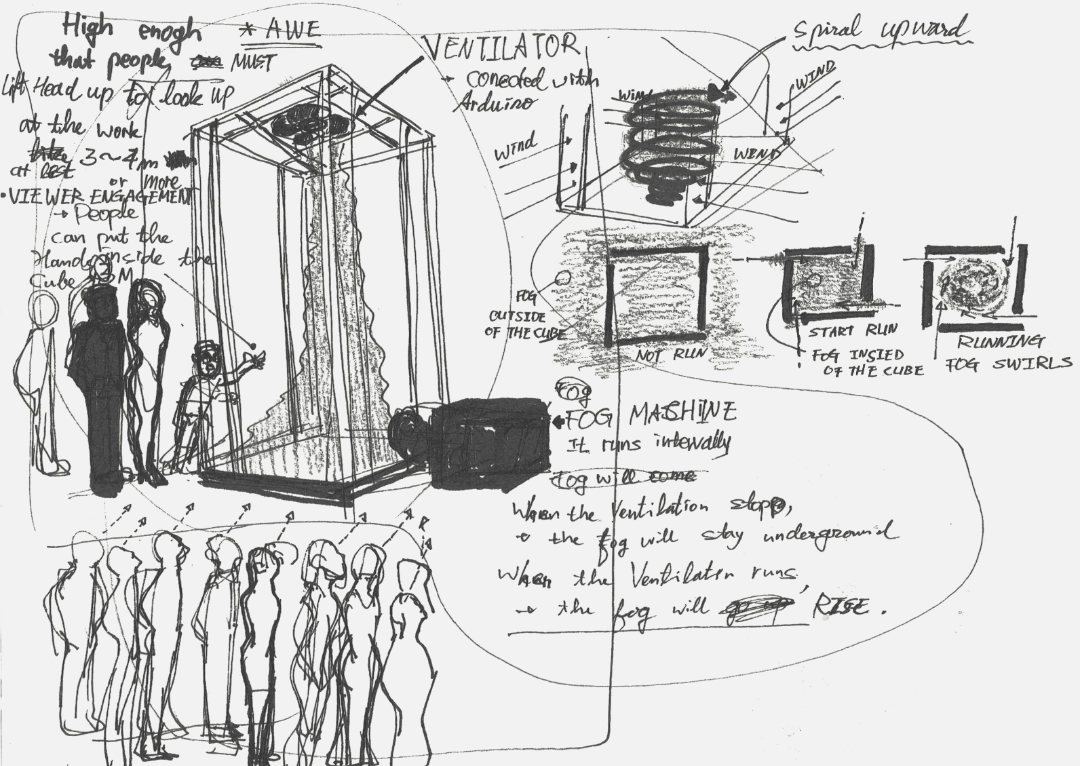 High enogh
that people MUST
* AWE
Lift Head up to look up
at the work
3~4m
at lest
or more
• VIEWER ENGAGEMENT
→ People
can put the
Hands inside the
Cube
VENTILATOR
→ conected with
Arduino
Spiral upward
WIND
WIND
Wind
WEND
FOG
OUTSIDE
OF THE CUBE
NOT RUN
START RUN
FOG INSIED
OF THE CUBE
RUNNING
FOG SWIRLS
Fog
FOG MACHINE
It runs intervally
Fog will come
When the Ventilation stopp,
→ the fog will stay underground
When the Ventilatin runs,
→ the fog will go up RISE.